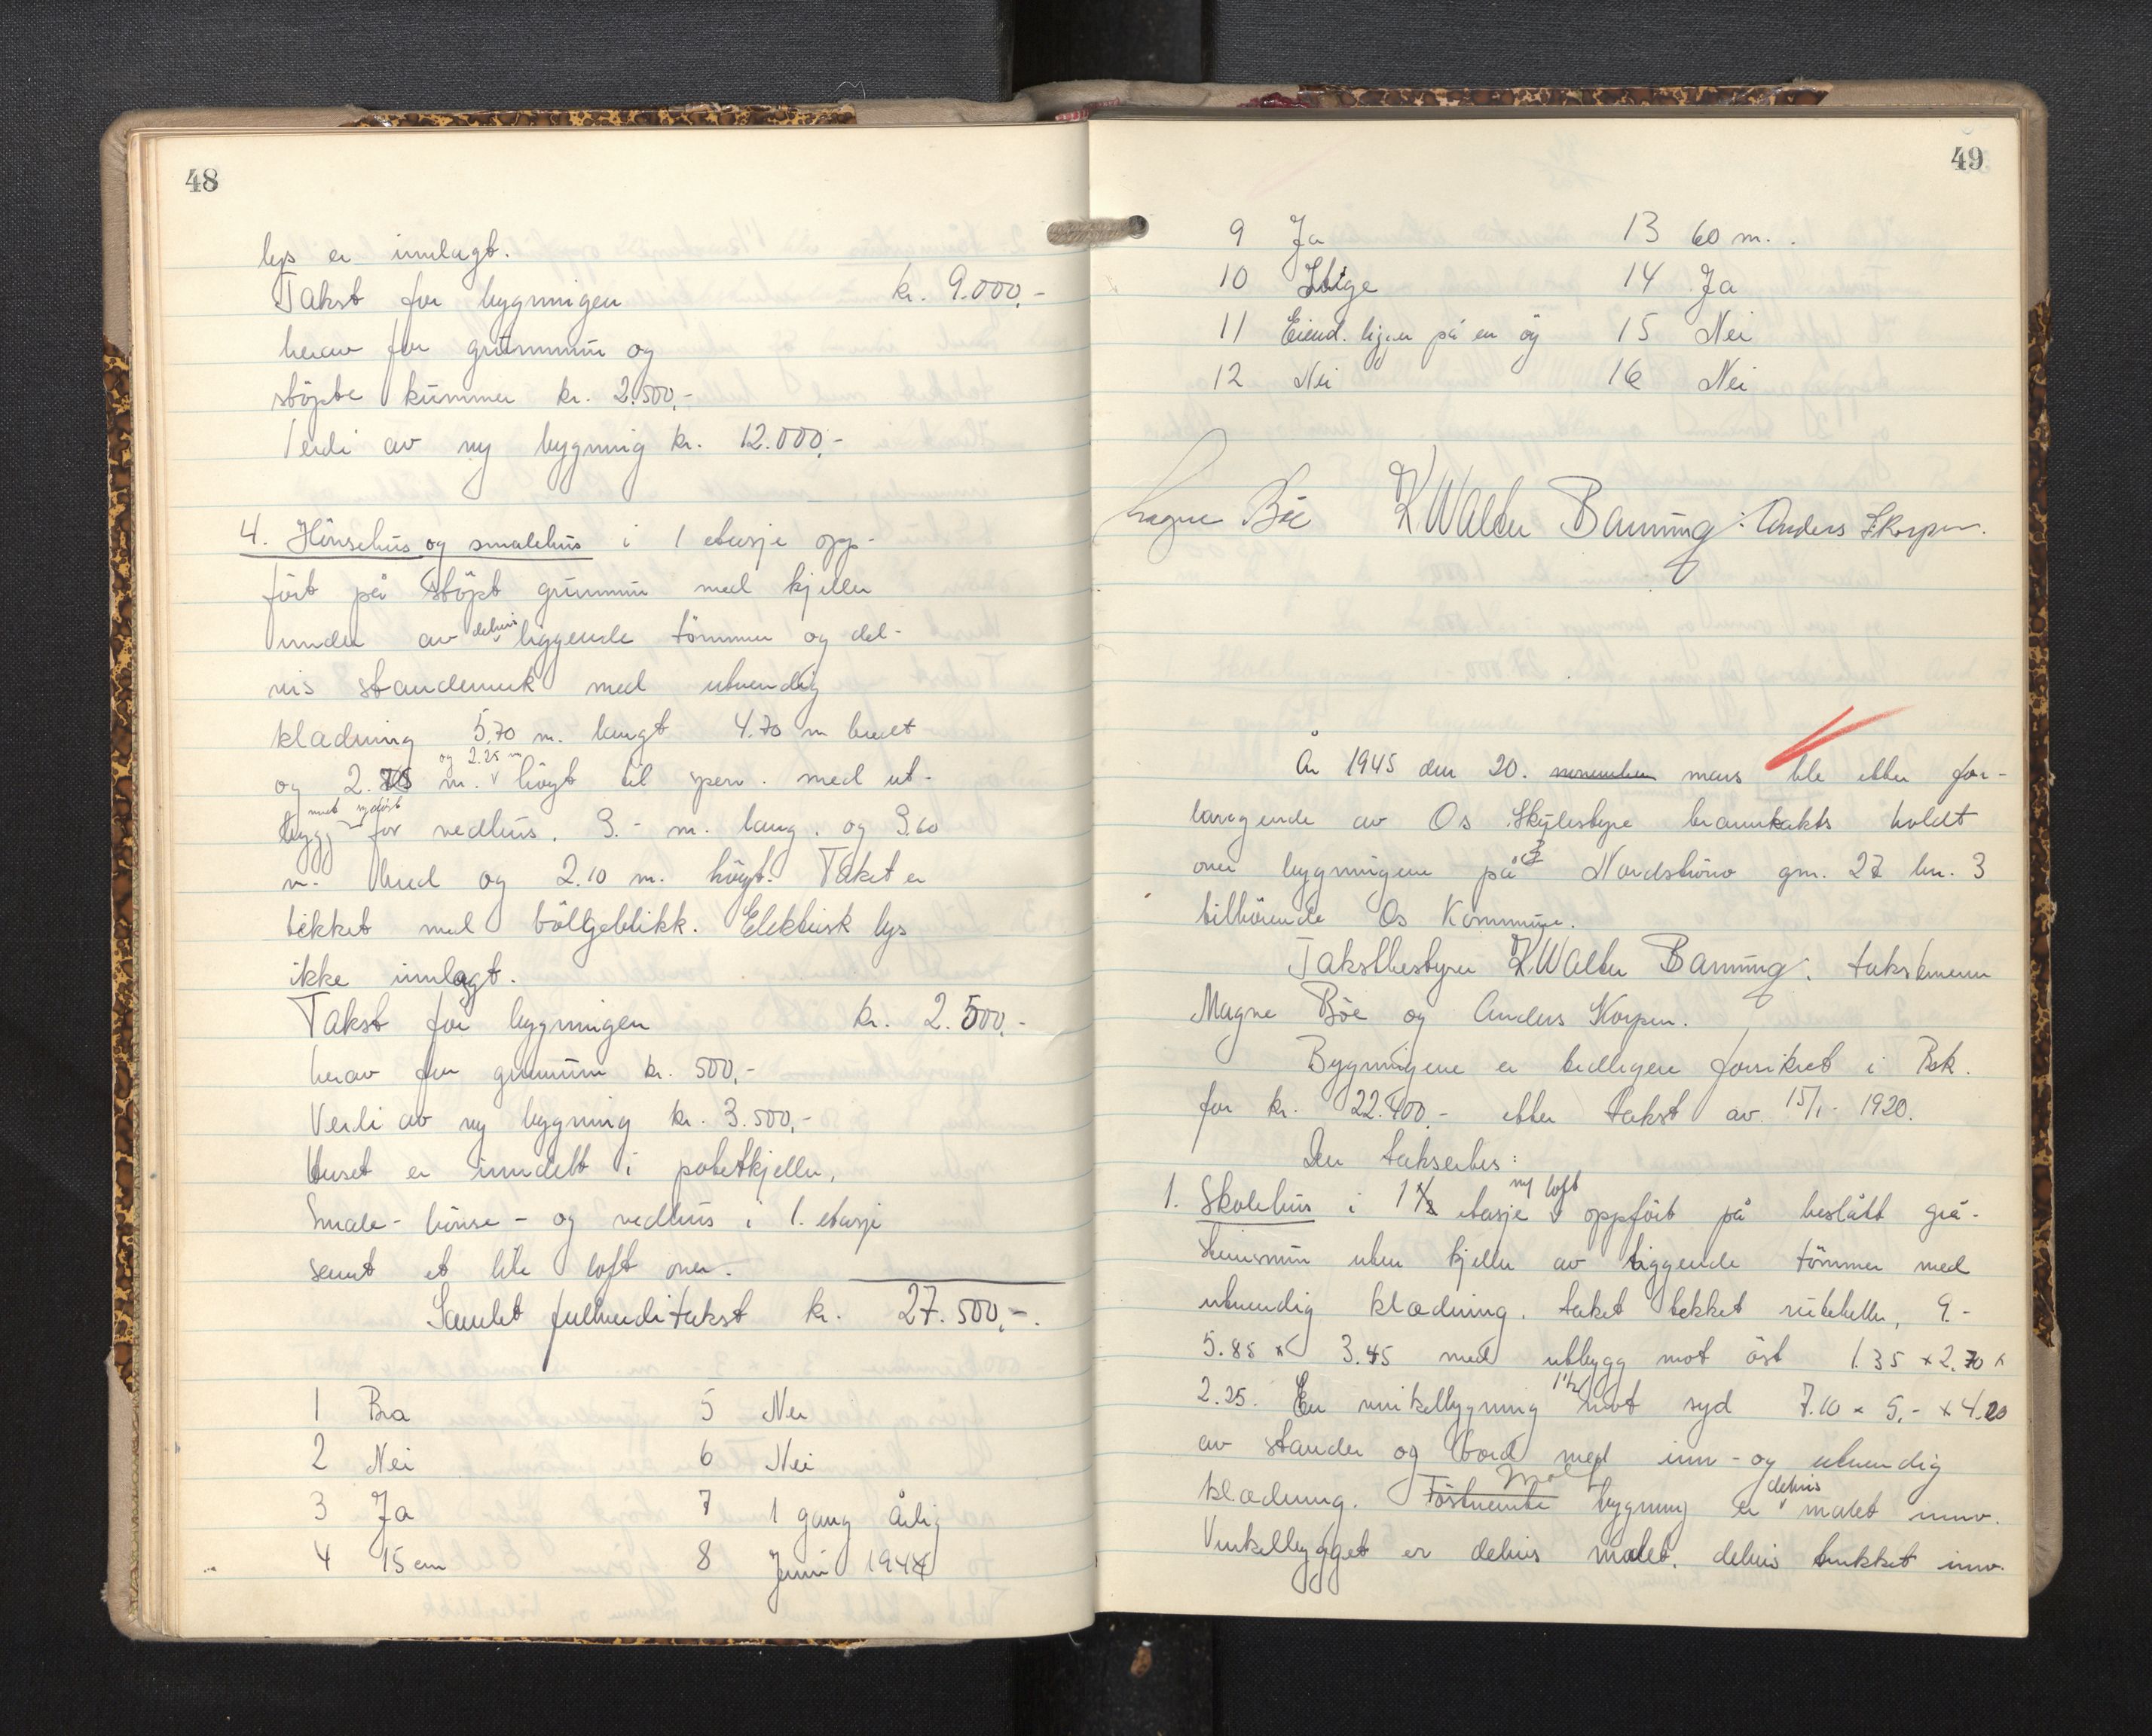 48
lys er innlagt.
Takst for bygningen kr. 9.000,-
herav for grunnmur og
støpte kummer kr. 2.500,-
Verdi av ny bygning kr. 12.000,-
4. Hönsehus og smalehus i 1 etasje opp-
fört på støpt grunnmur med kjeller
under av delvis liggende tömmer og del-
vis standerverk med utvendig
kladning 5,70 m. langt 4.70 m bredt
og 2.75 m. og 2.25 m högt til sperr. med ut-
bygg mot sydöst for vedhus. 3.- m. lang. og 3.60
m. bred og 2.10 m. högt. Taket er
tekket med bölgeblikk. Elektrisk lys
ikke innlagt.
Takst for bygningen kr. 2.500,-
herav for grunnmur kr. 500,-
Verdi av ny bygning kr. 3.500,-
Huset er inndelt i potetkjeller,
Smale- hönse- og vedhus i 1. etasje
samt et lite loft over.
Samlet fullverditakst kr. 27.500,-.
1 Bra 5 Nei
2 Nei 6 Nei
3 Ja 7 1 gang årlig
4 15 cm 8 Juni 1944
49
9 Ja 13 60 m..
10 Stige 14 Ja
11 Eiend. ligger på en öy 15 Nei
12 Nei 16 Nei
Magne Böe K Walter Banning. Anders Skorpen.
År 1945 den 20. november mars ble etter for-
langende av Os Skulestyre branntakts holdt
over bygningene på Nordströno gnr. 27 bn. 3
tilhörende Os Kommune.
Takstbestyrer K Walter Banning. takstmenn
Magne Böe og Anders Skorpen.
Bygningene er tidligere forsikret i Bsk.
for kr. 22.400.- etter takst av 15/1- 1920.
Der taksertes:
1. Skolehus i 1 1/2 etasje m/ loft oppfört på beslått grå-
steinsmur uten kjeller av liggende tömmer med
utvendig klædning. taket tekket ruteheller, 9.-
5.85 x 3.45 med utbygg mot öst 1.35 x 2.70 x
2.25. En vinkelbygning 1 1/2 mot syd 7.10 x 5.- x 4.20
av stander og bord med inn- og utvendig
klædning. Föstnevnte bygning er delvis malet innv.
Vinkelbygget er delvis malet, delvis trukket innv.